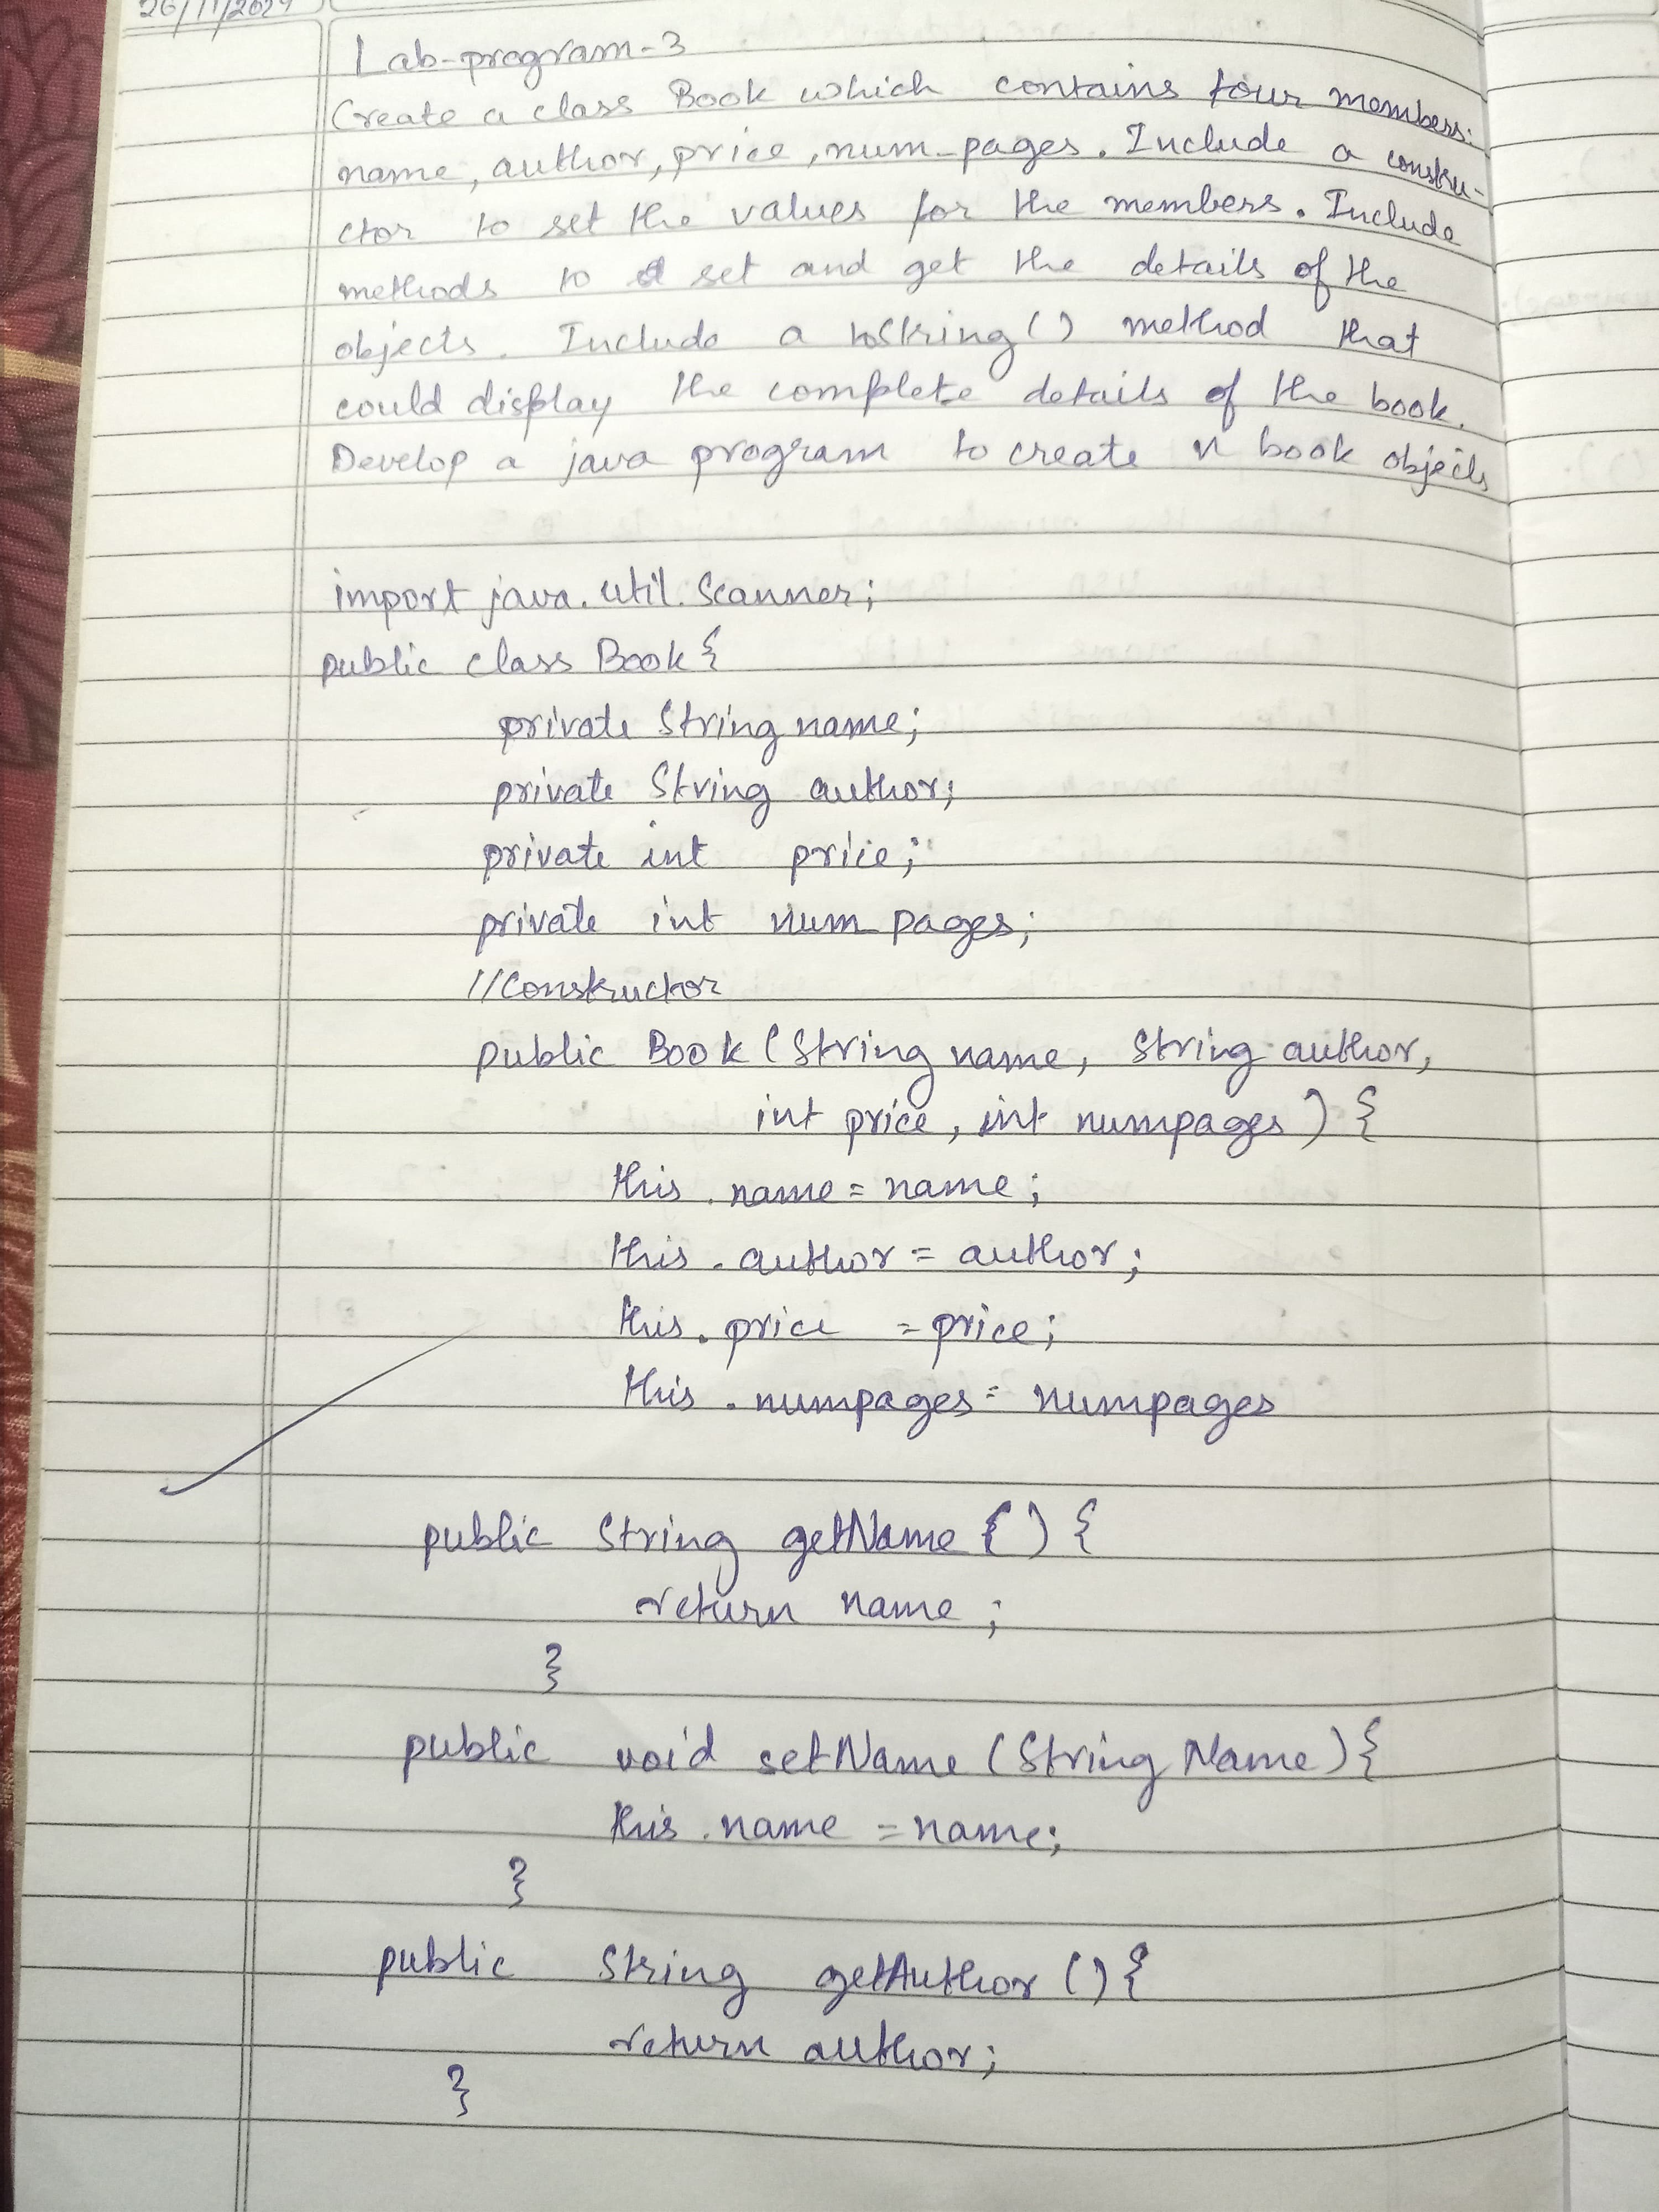 26/11/2024
Lab-program-3
Create a class Book which contains four members:
name, author, price, num_pages. Include a constru-
ctor to set the values for the members. Include
methods to set and get the details of the
objects. Include a toString() method that
could display the complete details of the book.
Develop a java program to create n book objects
import java.util.Scanner;
public class Book {
private String name;
private String author;
private int price;
private int num_pages;
//Constructor
public Book (String name, String author,
int price, int numpages) {
this.name = name;
this.author = author;
this.price = price;
this.numpages = numpages
public String getName () {
return name;
}
public void setName (String Name) {
this.name = name;
}
public String getAuthor () {
return author;
}